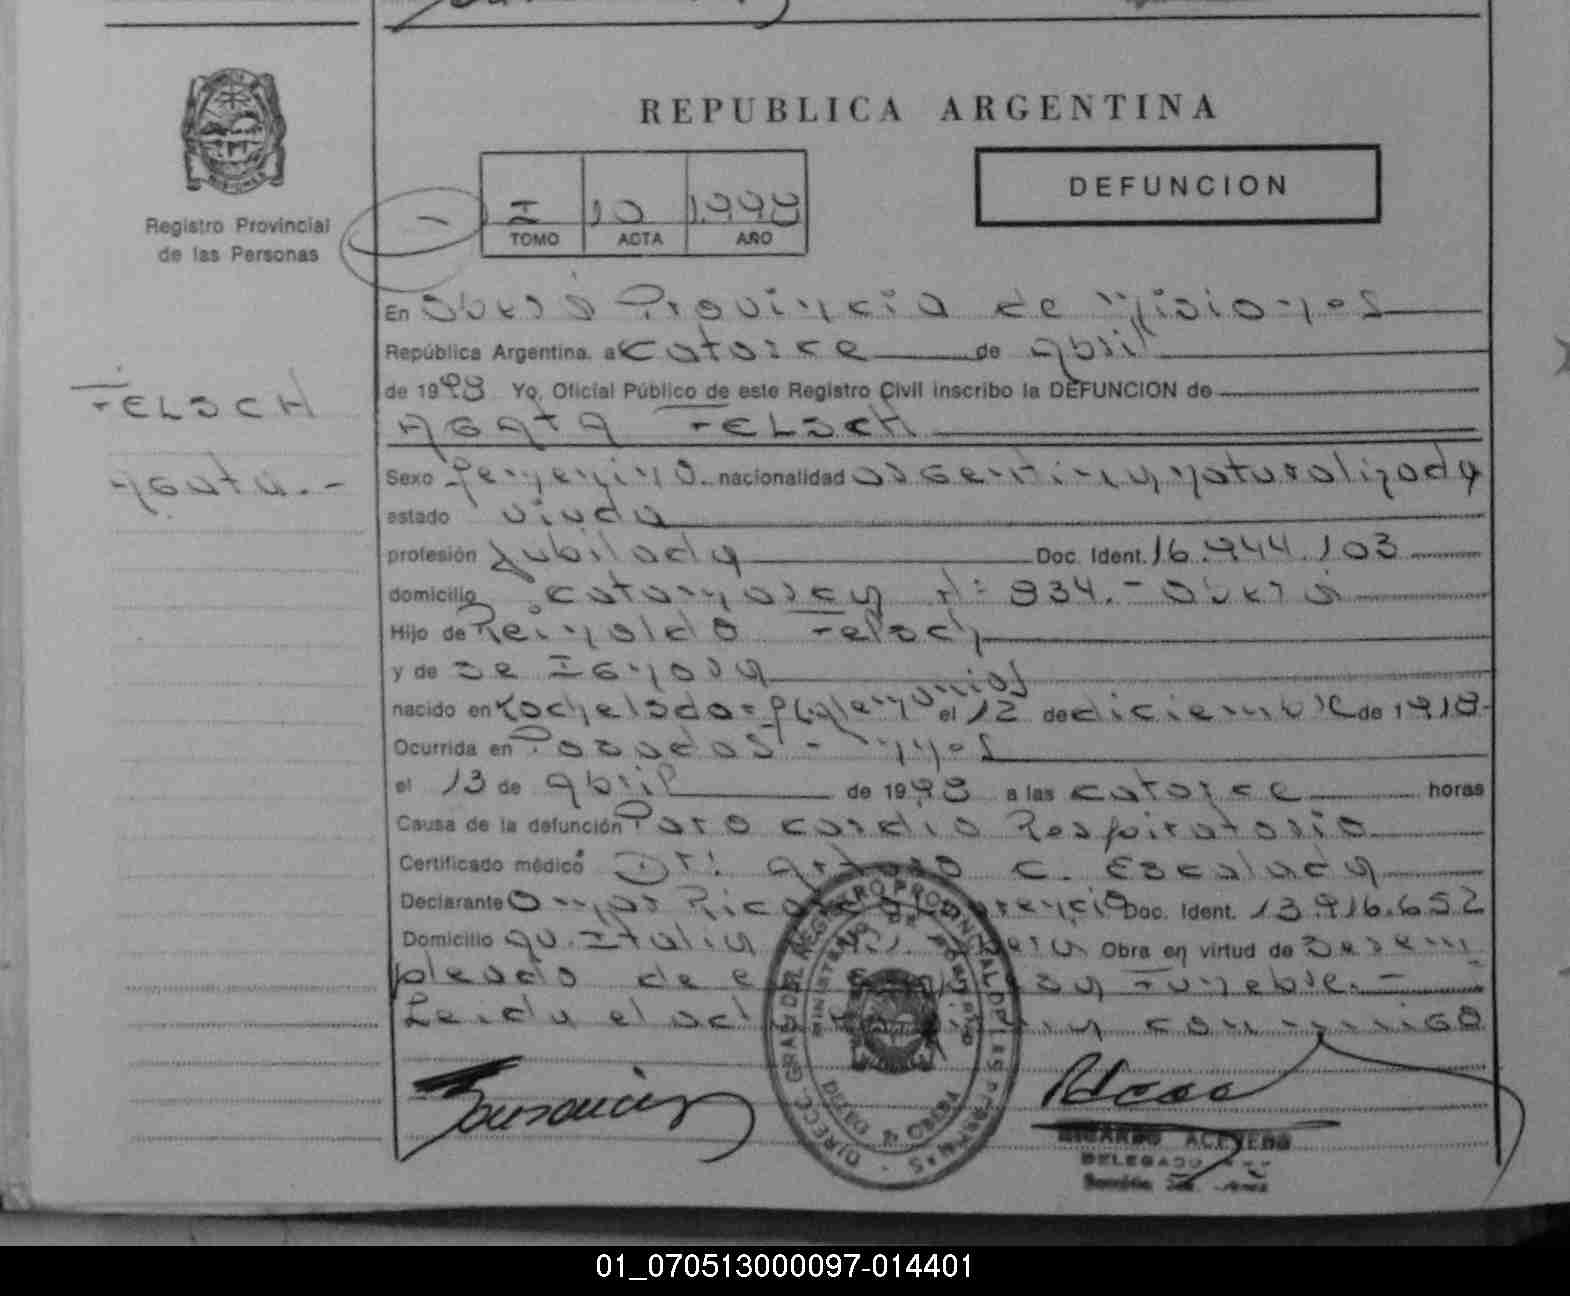 REPUBLICA ARGENTINA
Registro Provincial
de las Personas
DEFUNCION
I 10 1998
TOMO ACTA AÑO
En Oberá Provincia de Misiones
República Argentina, a catorce de abril
de 1998 Yo, Oficial Público de este Registro Civil inscribo la DEFUNCION de
FELSCH
AGATA FELSCH
Agata.-
Sexo femenino. nacionalidad argentina naturalizada
estado viuda
profesión jubilada Doc. Ident. 16.944.103
domicilio Catamarca Nº 834.- Oberá
Hijo de Reinoldo Felsch
y de Se Ignora
nacido en el 12 de diciembre de 1918-
Ocurrida en Posadas - Mnes
el 13 de abril de 1998 a las catorce horas
Causa de la defunción Paro Cardio Respiratorio
Certificado médico Dr: Arturo C. Escalada
Declarante Omar Doc. Ident. 13.916.652
Domicilio av. Italia Obra en virtud de Ser em
pleado de Funebre.-
Leida el conmigo
DIRECC. GRAL. DEL REGISTRO PROVINCIAL DE LAS PERSONAS
MINISTERIO DE GOBIERNO
OBERA
RICARDO ACEVEDO
DELEGADO
01_070513000097-014401